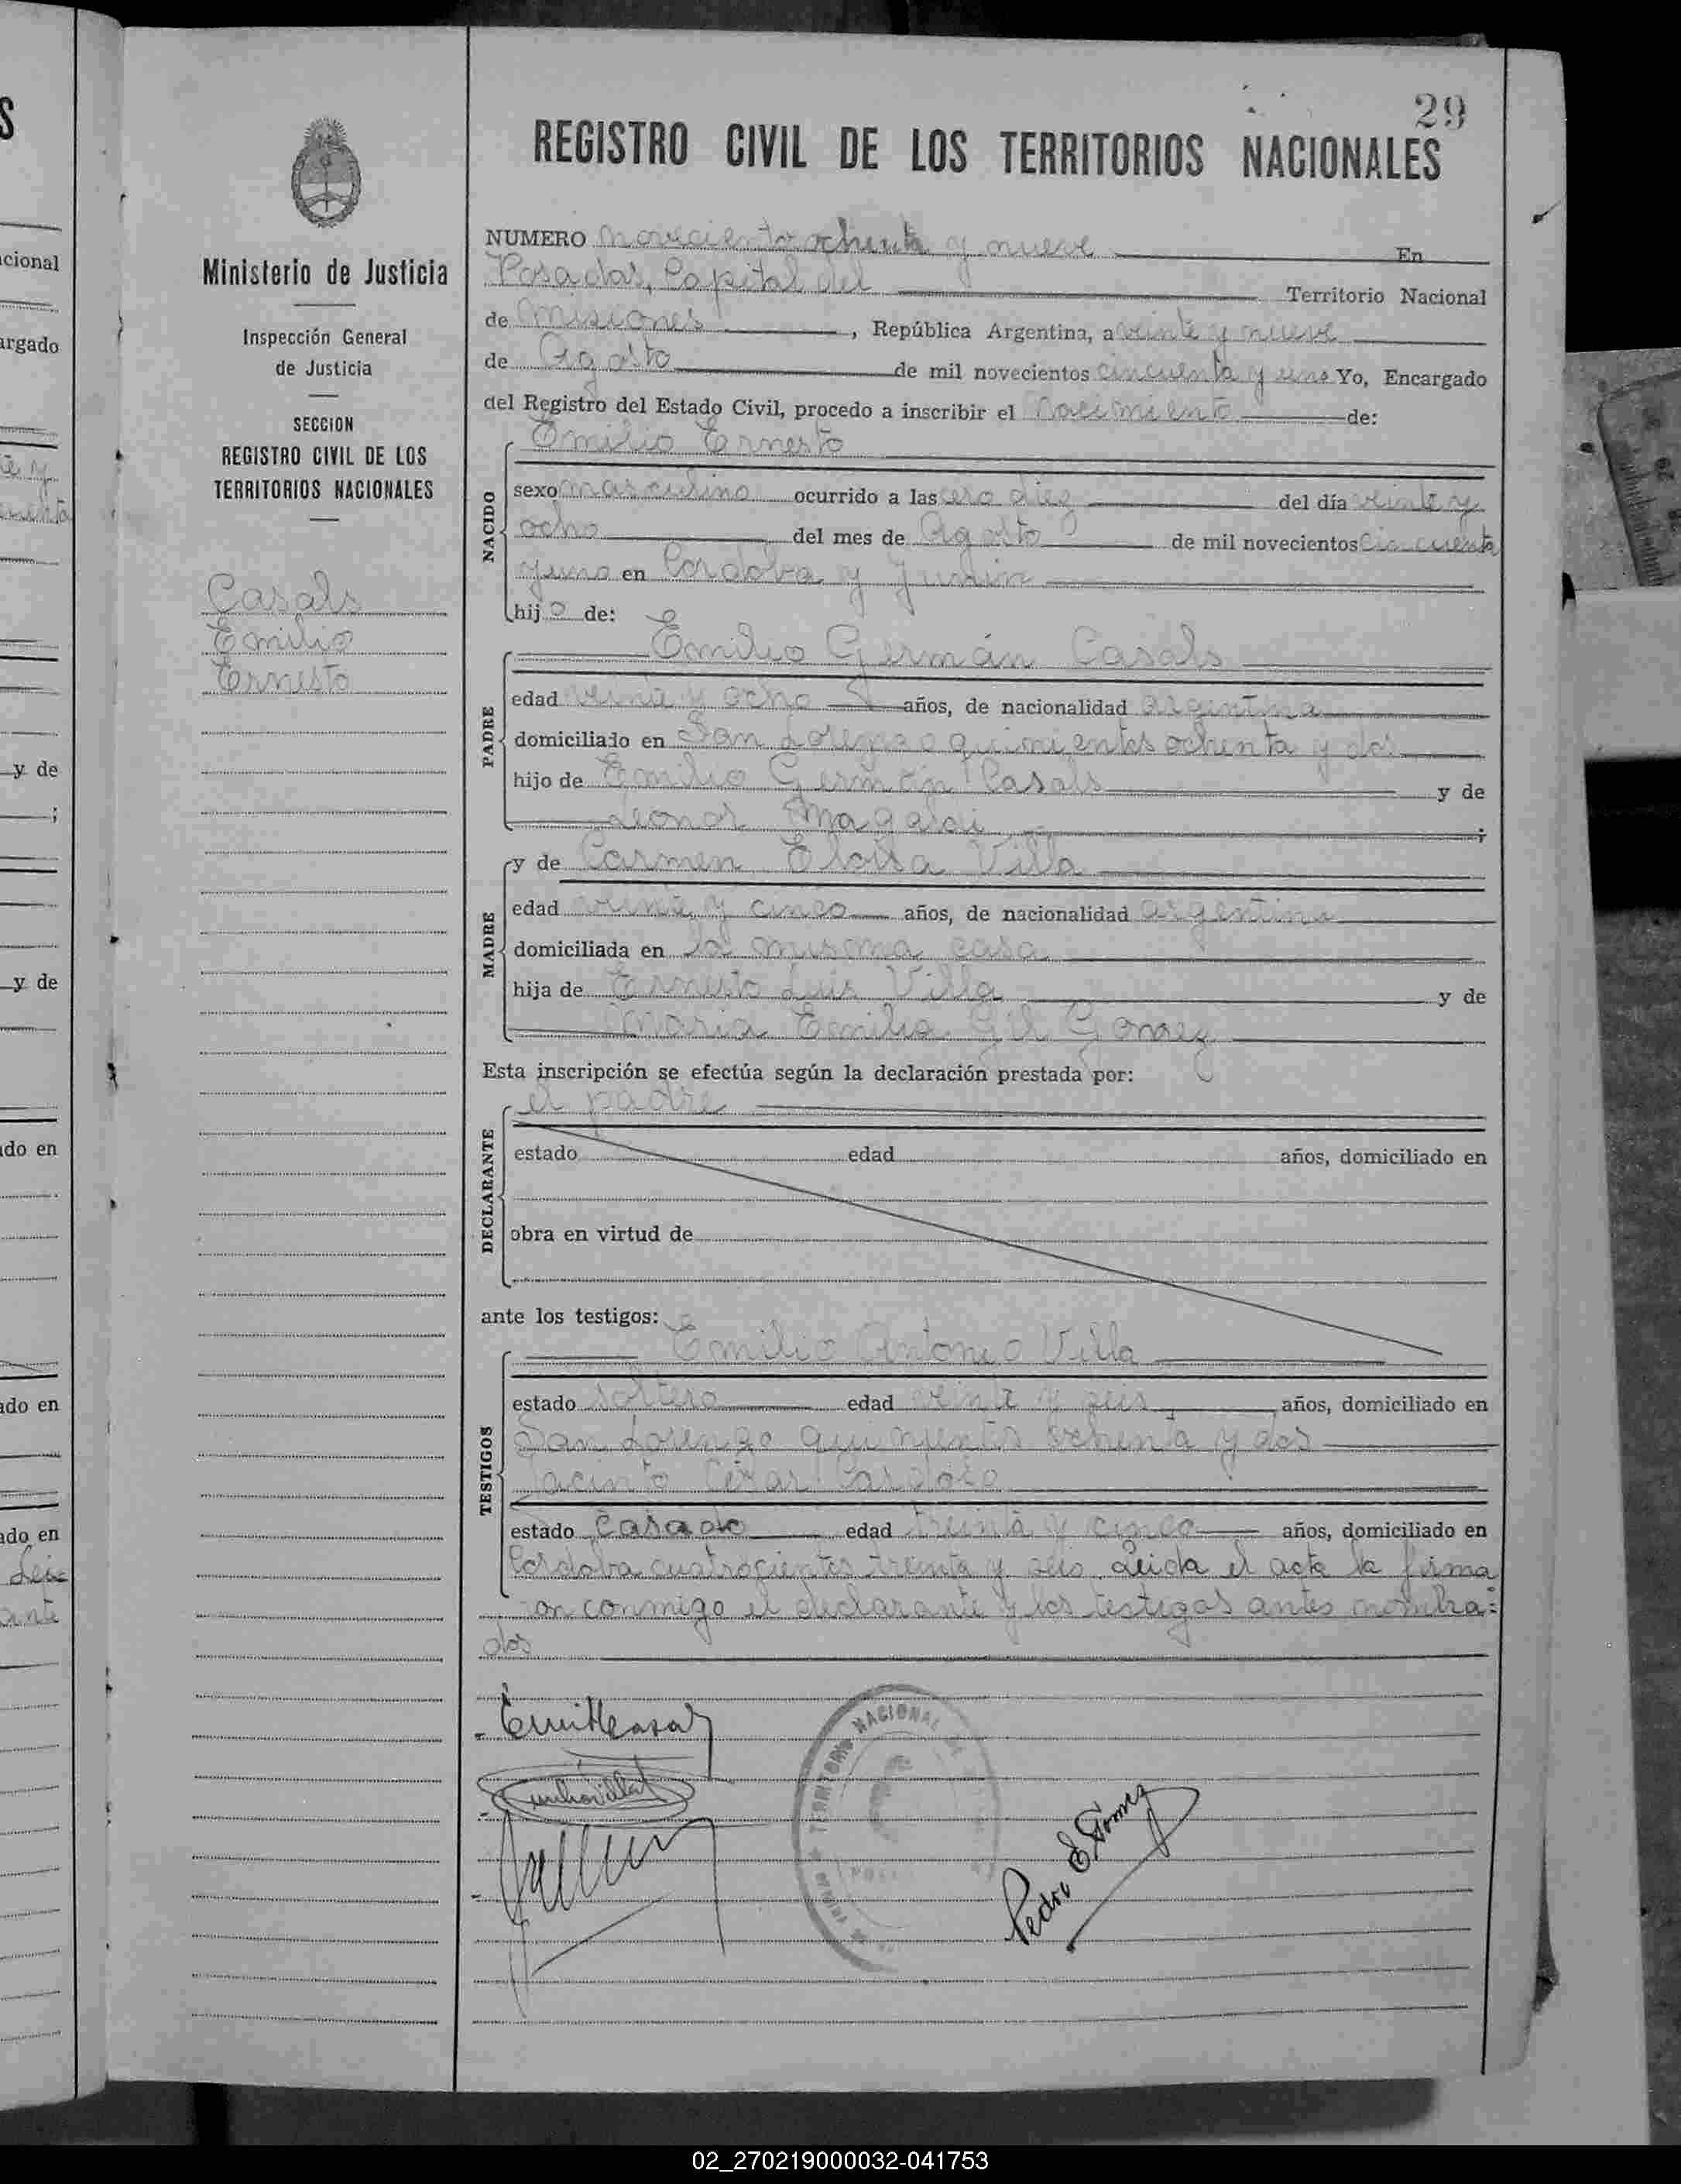 29
REGISTRO CIVIL DE LOS TERRITORIOS NACIONALES
Ministerio de Justicia
Inspección General
de Justicia
SECCION
REGISTRO CIVIL DE LOS
TERRITORIOS NACIONALES
Casals
Emilio
Ernesto
NUMERO novecientos ochenta y nueve En
Posadas, Capital del Territorio Nacional
de Misiones, República Argentina, a veinte y nueve
de Agosto de mil novecientos cincuenta y uno Yo, Encargado
del Registro del Estado Civil, procedo a inscribir el nacimiento de:
NACIDO
Emilio Ernesto
sexo masculino ocurrido a las cero diez del día veinte y
ocho del mes de Agosto de mil novecientos cincuenta
y uno en Cordoba y Junin
hijo de:
PADRE
Emilio Germán Casals
edad veinte y ocho años, de nacionalidad argentina
domiciliado en San Lorenzo quinientos ochenta y dos
hijo de Emilio Germán Casals y de
Leonor Magaldi;
MADRE
y de Carmen Eloisa Villa
edad veinte y cinco años, de nacionalidad argentina
domiciliada en la misma casa
hija de Ernesto Luis Villa y de
Maria Emilia Gil Gomez
Esta inscripción se efectúa según la declaración prestada por:
DECLARANTE
el padre
estado edad años, domiciliado en
obra en virtud de
ante los testigos:
TESTIGOS
Emilio Antonio Villa
estado soltero edad veinte y seis años, domiciliado en
San Lorenzo quinientos ochenta y dos
Jacinto César Cardozo
estado casado edad treinta y cinco años, domiciliado en
Cordoba cuatrocientos treinta y seis. Leida el acta la firma
ron conmigo el declarante y los testigos antes nombra=
dos
TERRITORIO NACIONAL
Pedro E. Gomez
S
cional
argado
y de
y de
do en
ado en
ado en
02_270219000032-041753